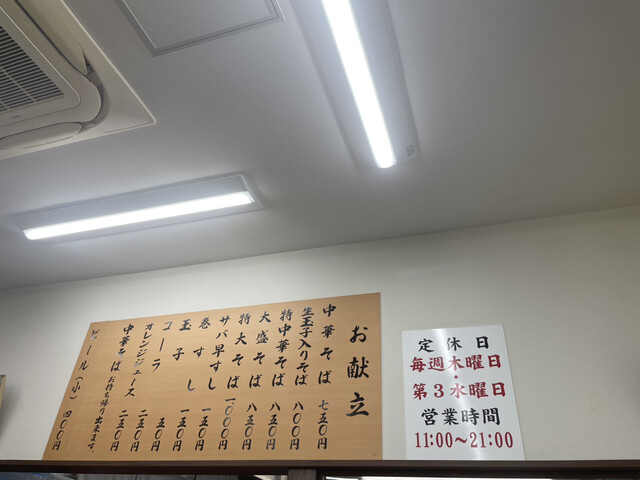 お献立
中華そば 七五〇円
生玉子入りそば 八〇〇円
特中華そば 八五〇円
大盛そば 八五〇円
特大そば 一〇〇〇円
サバ早すし 一五〇円
巻すし 一五〇円
玉子 五〇円
コーラ 二五〇円
オレンジジュース 二五〇円
中華そばお持ち帰り出来ます。
ビール(小) 四〇〇円
定休日
毎週木曜日
・
第3水曜日
営業時間
11:00～21:00